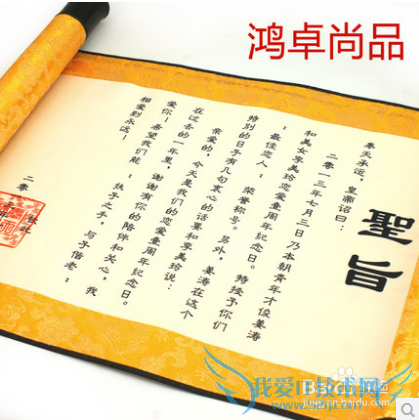 鸿卓尚品
聖旨
奉天承运,皇帝诏曰:
二零一三年七月三日乃本朝青年才俊姜涛
和美女李美玲恋爱壹周年纪念日。特授予你们
:最佳恋人: 荣誉称号。另外,姜涛在这个
特别的日子有几句衷心的话要和李美玲说:
亲爱的,今天是我们的恋爱壹周年纪念日。
在过去的一年里,谢谢有你的陪伴和关心,我
爱你! 希望我们能:执子之手,与子偕老:
相爱到永远!
二零
我爱IT技术网
www.52ij.com
jingyan.baidu.com